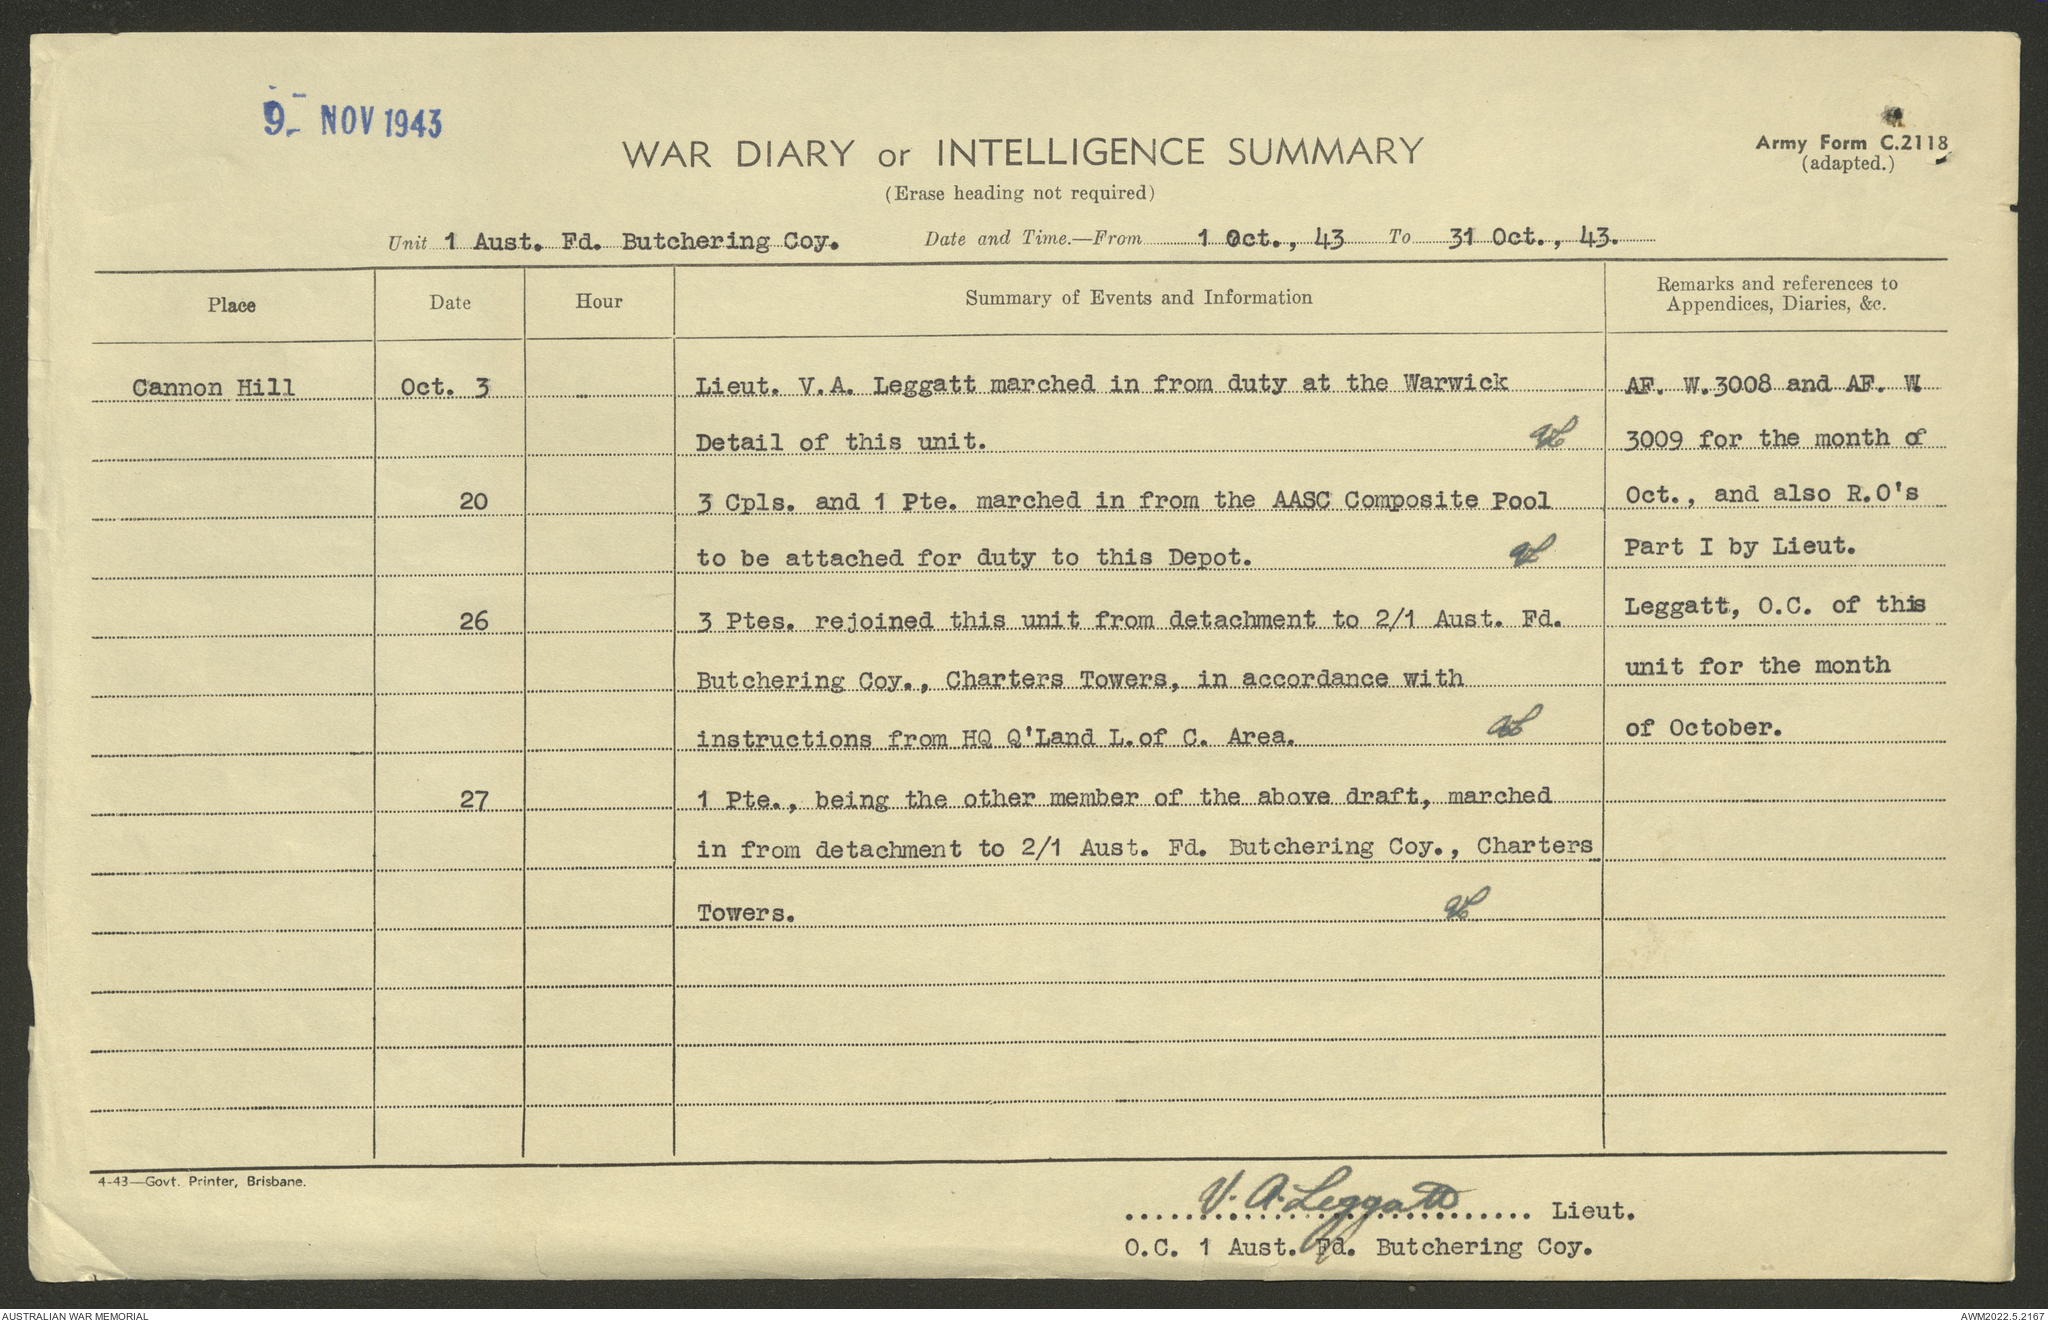 9 - NOV 1943
WAR DIARY or INTELLIGENCE SUMMARY
(Erase heading not required)
Army Form C.2118
(adapted.)
Unit 1 Aust. Fd. Butchering Coy. Date and Time.—From 1 Oct., 43 To 31 Oct., 43.
Place Date Hour Summary of Events and Information Remarks and references to
Appendices, Diaries, &c.
Cannon Hill Oct. 3 Lieut. V.A. Leggatt marched in from duty at the Warwick AF. W.3008 and AF. W.
Detail of this unit. VL 3009 for the month of
20 3 Cpls. and 1 Pte. marched in from the AASC Composite Pool Oct., and also R.O's
to be attached for duty to this Depot. VL Part I by Lieut.
26 3 Ptes. rejoined this unit from detachment to 2/1 Aust. Fd. Leggatt, O.C. of this
Butchering Coy., Charters Towers, in accordance with unit for the month
instructions from HQ Q'Land L.of C. Area. VL of October.
27 1 Pte., being the other member of the above draft, marched
in from detachment to 2/1 Aust. Fd. Butchering Coy., Charters
Towers. VL
4-43—Govt. Printer, Brisbane.
V. A. Leggatt Lieut.
O.C. 1 Aust. Fd. Butchering Coy.
AUSTRALIAN WAR MEMORIAL AWM2022.5.2167